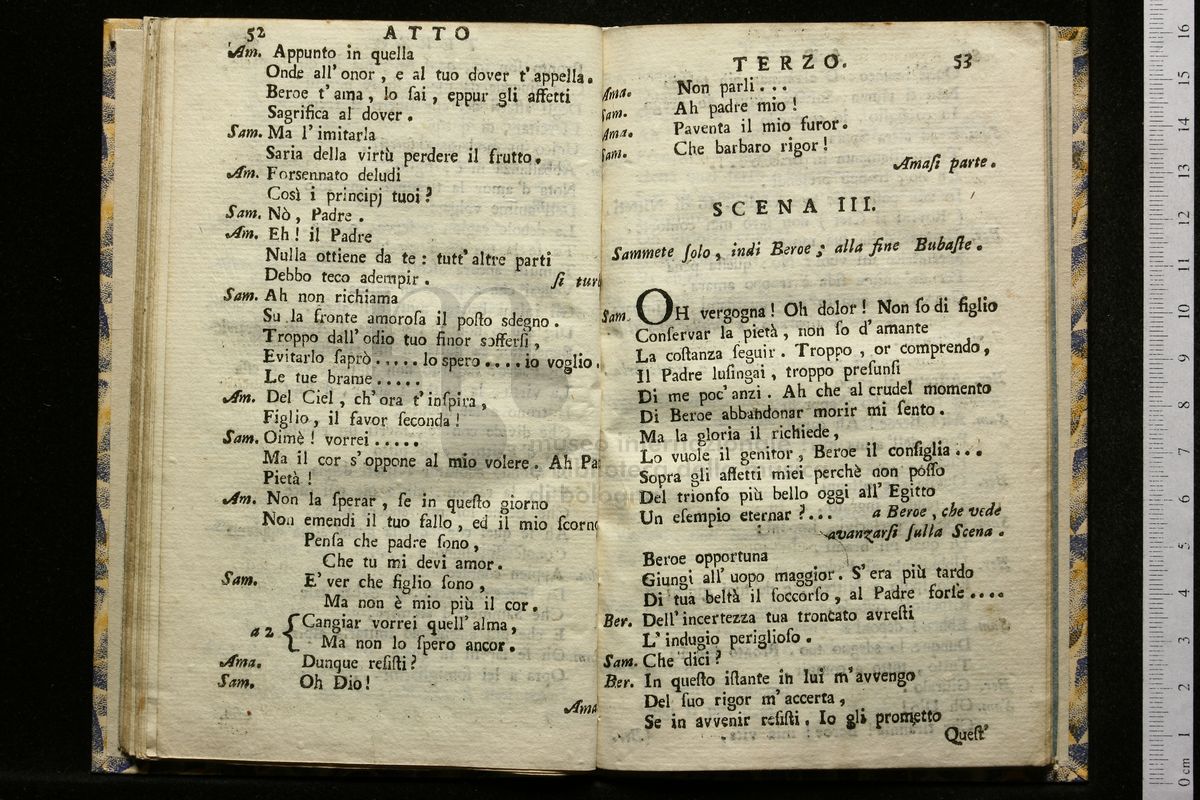 52 ATTO
Am. Appunto in quella
Onde all' onor, e al tuo dover t'appella.
Beroe t'ama, lo sai, eppur gli affetti
Sagrifica al dover.
Sam. Ma l'imitarla
Saria della virtù perdere il frutto.
Am. Forsennato deludi
Così i principj tuoi?
Sam. Nò, Padre.
Am. Eh! il Padre
Nulla ottiene da te: tutt' altre parti
Debbo teco adempir. si turb
Sam. Ah non richiama
Su la fronte amorosa il posto sdegno.
Troppo dall' odio tuo finor soffersi,
Evitarlo saprò ..... lo spero .... io voglio.
Le tue brame .....
Am. Del Ciel, ch'ora t'inspira,
Figlio, il favor seconda!
Sam. Oimè! vorrei .....
Ma il cor s'oppone al mio volere. Ah Pa
Pietà!
Am. Non la sperar, se in questo giorno
Non emendi il tuo fallo, ed il mio scorno
Pensa che padre sono,
Che tu mi devi amor.
Sam. E' ver che figlio sono,
Ma non è mio più il cor.
a 2 { Cangiar vorrei quell' alma,
Ma non lo spero ancor.
Ama. Dunque resisti?
Sam. Oh Dio!
Ama
TERZO. 53
Ama. Non parli...
Sam. Ah padre mio!
Ama. Paventa il mio furor.
Sam. Che barbaro rigor!
Amasi parte.
SCENA III.
Sammete solo, indi Beroe; alla fine Bubaste.
Sam. OH vergogna! Oh dolor! Non so di figlio
Conservar la pietà, non so d'amante
La costanza seguir. Troppo, or comprendo,
Il Padre lusingai, troppo presunsi
Di me poc' anzi. Ah che al crudel momento
Di Beroe abbandonar morir mi sento.
Ma la gloria il richiede,
Lo vuole il genitor, Beroe il consiglia...
Sopra gli affetti miei perchè non posso
Del trionfo più bello oggi all' Egitto
Un esempio eternar?... a Beroe, che vede
avanzarsi sulla Scena.
Beroe opportuna
Giungi all' uopo maggior. S'era più tardo
Di tua beltà il soccorso, al Padre forse ....
Ber. Dell' incertezza tua troncato avresti
L' indugio periglioso.
Sam. Che dici?
Ber. In questo istante in lui m'avvengo
Del suo rigor m'accerta,
Se in avvenir resisti. Io gli prometto
Quest'